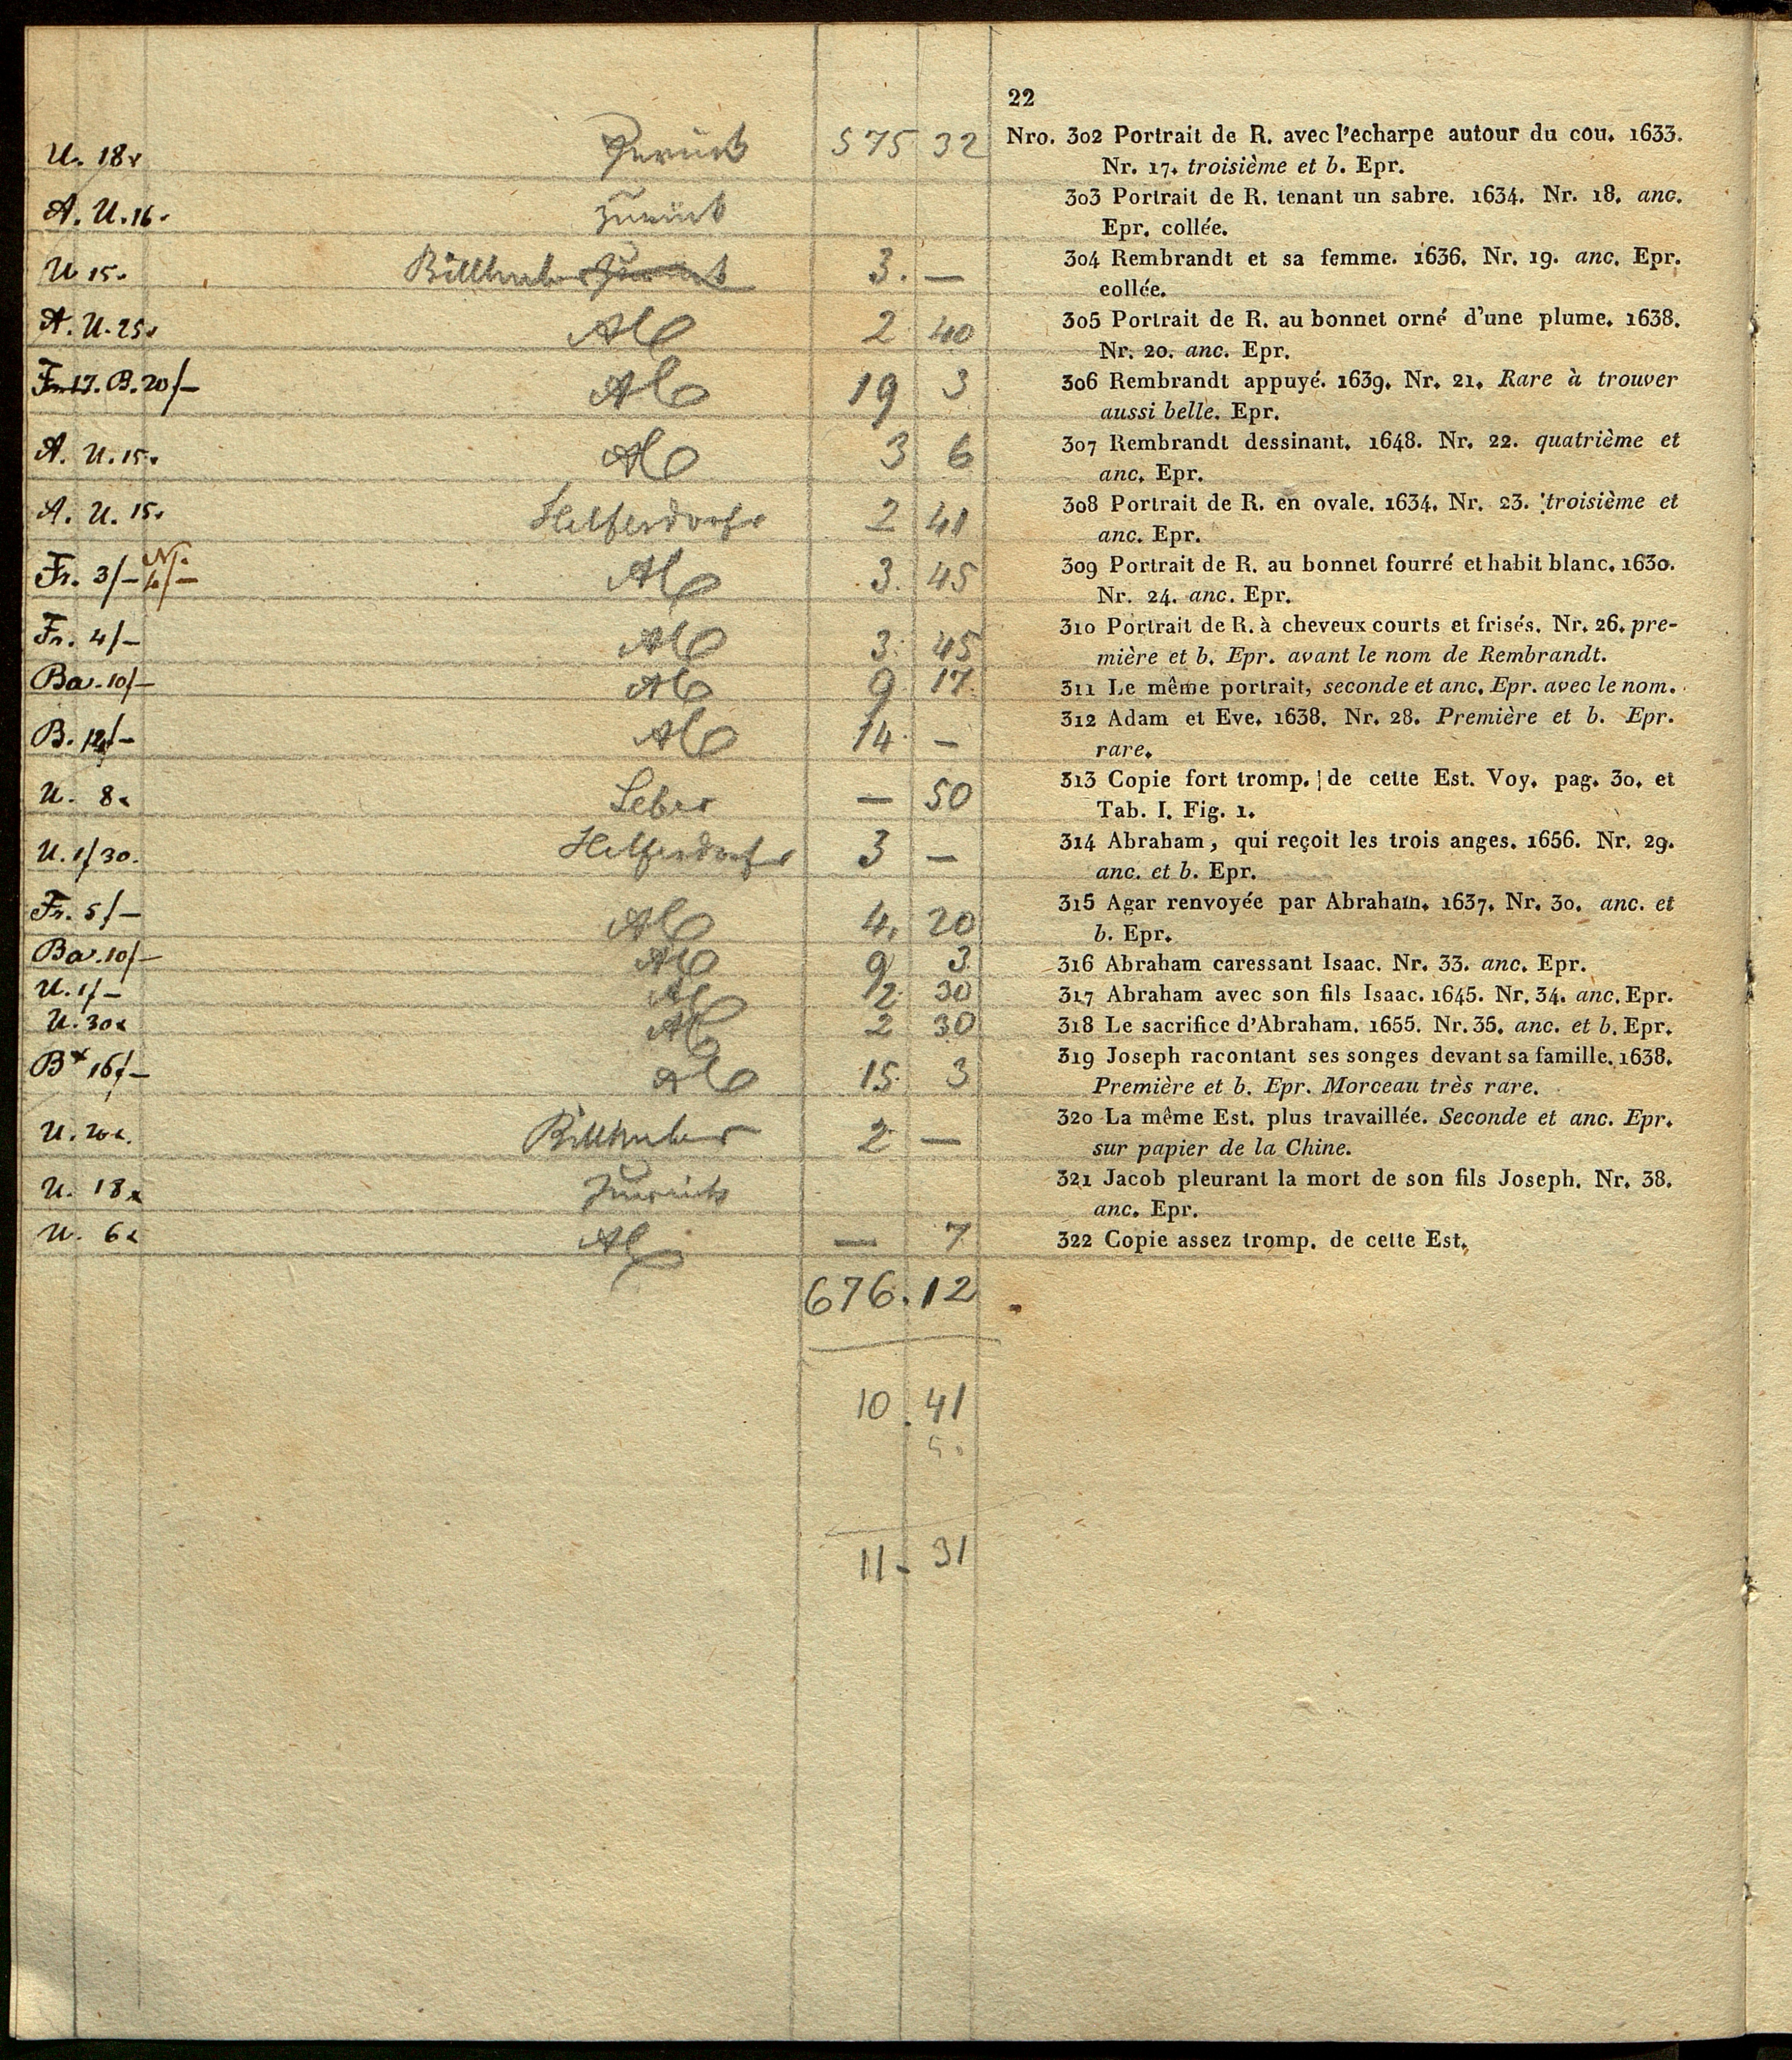 22
U. 18x Zurück 575 32 Nro. 302 Portrait de R. avec l'echarpe autour du cou. 1633.
Nr. 17. troisième et b. Epr.
A. U. 16. zurück 303 Portrait de R. tenant un sabre. 1634. Nr. 18. anc.
Epr. collée.
U 15. Billhuber zurück 3. — 304 Rembrandt et sa femme. 1636. Nr. 19. anc. Epr.
collée.
A. U. 25. 2 40 305 Portrait de R. au bonnet orné d'une plume. 1638.
Nr. 20. anc. Epr.
Fr. 17. B. 20/— 19 3 306 Rembrandt appuyé. 1639. Nr. 21. Rare à trouver
aussi belle. Epr.
A. U. 15. 3 6 307 Rembrandt dessinant. 1648. Nr. 22. quatrième et
anc. Epr.
A. U. 15. Helferdorfr 2 41 308 Portrait de R. en ovale. 1634. Nr. 23. troisième et
anc. Epr.
Fr. 3/— 4/— 3. 45 309 Portrait de R. au bonnet fourré et habit blanc. 1630.
Nr. 24. anc. Epr.
Fr. 4/— 3. 45 310 Portrait de R. à cheveux courts et frisés. Nr. 26. pre-
mière et b. Epr. avant le nom de Rembrandt.
Ba. 10/— 9 17. 311 Le même portrait, seconde et anc. Epr. avec le nom.
B. /— 14 — 312 Adam et Eve. 1638. Nr. 28. Première et b. Epr.
rare.
U. 8x Leber — 50 313 Copie fort tromp. de cette Est. Voy. pag. 30. et
Tab. I. Fig. 1.
U. 1/30. Helferdorfr 3 — 314 Abraham, qui reçoit les trois anges. 1656. Nr. 29.
anc. et b. Epr.
Fr. 5/— 4. 20 315 Agar renvoyée par Abraham. 1637. Nr. 30. anc. et
b. Epr.
Ba. 10/— 9 3. 316 Abraham caressant Isaac. Nr. 33. anc. Epr.
U. 1/— 2 30 317 Abraham avec son fils Isaac. 1645. Nr. 34. anc. Epr.
U. 30x 2 30 318 Le sacrifice d'Abraham. 1655. Nr. 35. anc. et b. Epr.
B 16/— 15 3 319 Joseph racontant ses songes devant sa famille. 1638.
Première et b. Epr. Morceau très rare.
U. 20x. Billhuber 2 — 320 La même Est. plus travaillée. Seconde et anc. Epr.
sur papier de la Chine.
U. 18x Zurück 321 Jacob pleurant la mort de son fils Joseph. Nr. 38.
anc. Epr.
U. 6x — 7 322 Copie assez tromp. de cette Est.
676.12
10.41
11-31